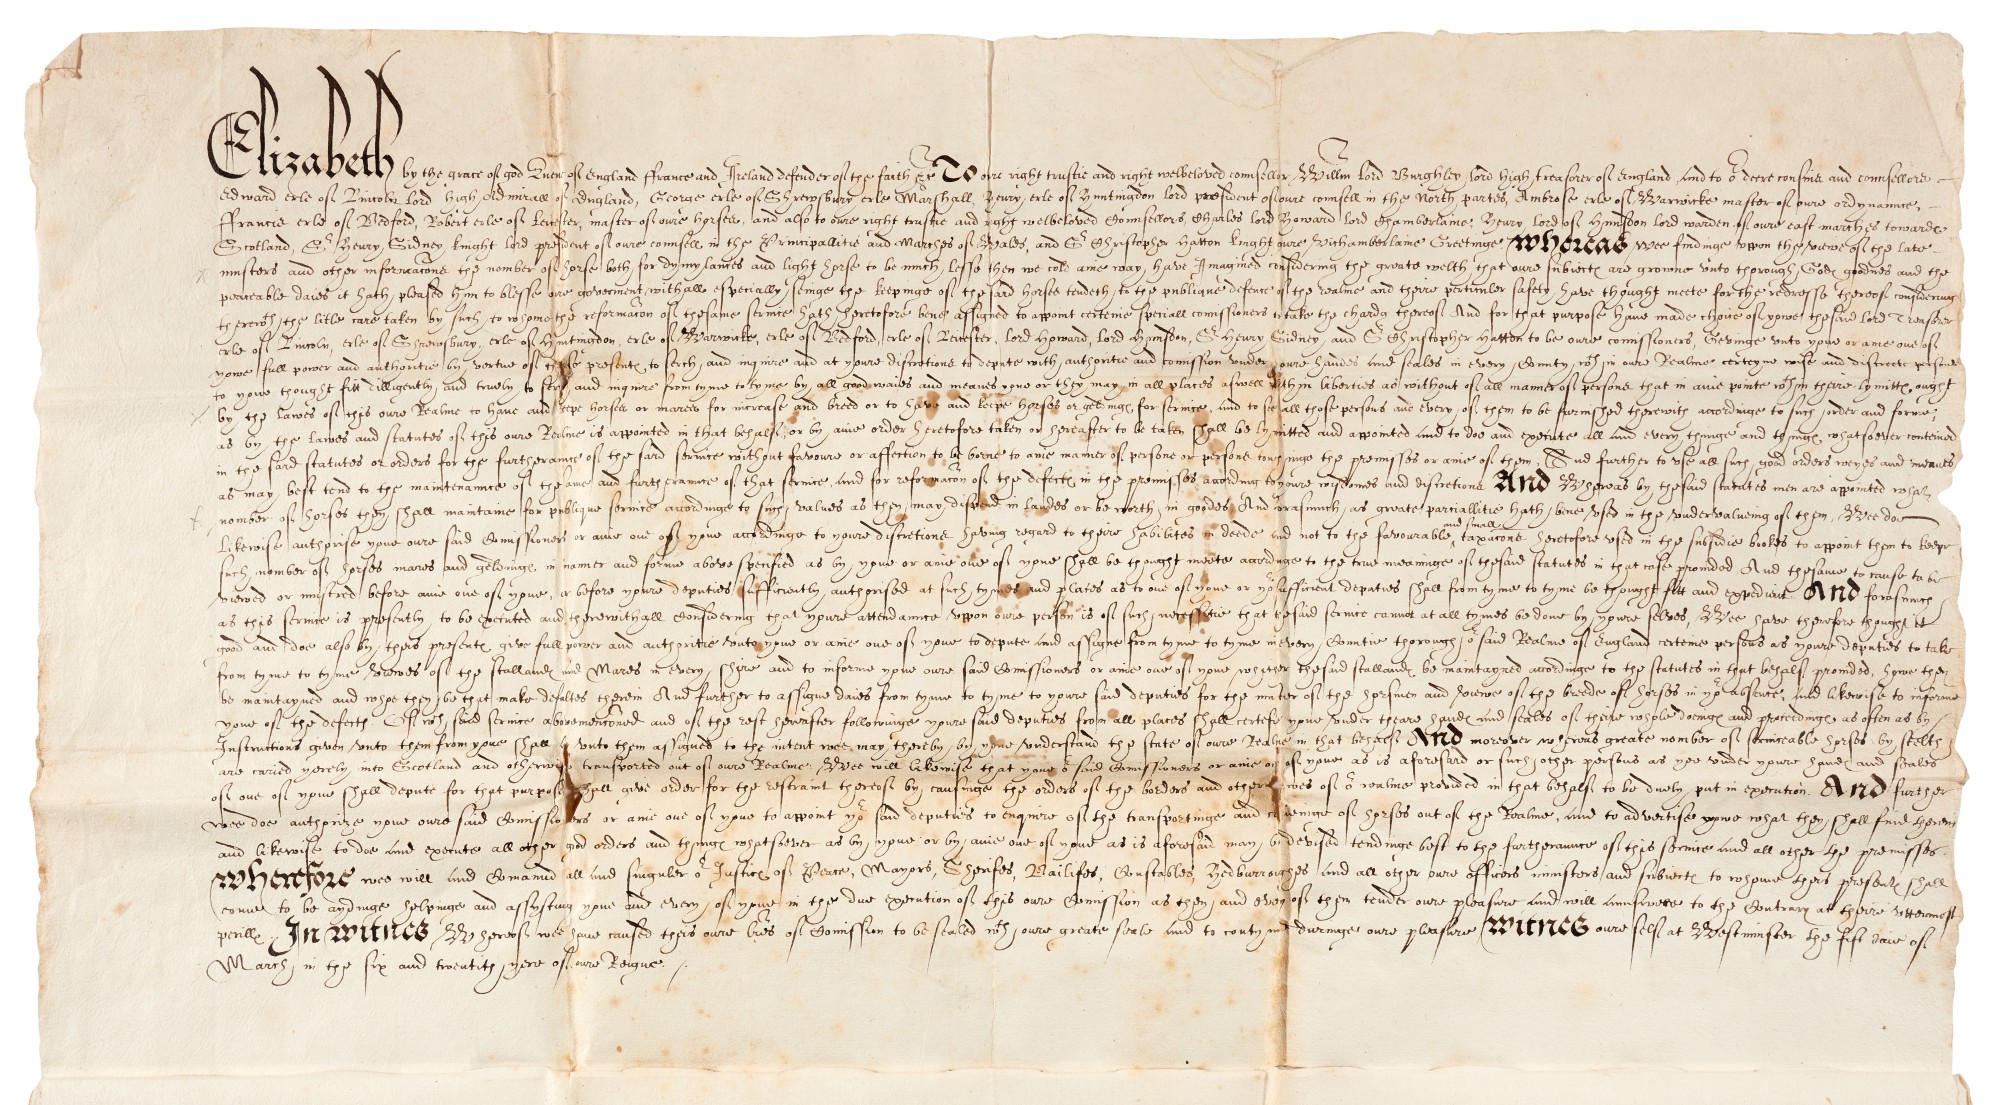 Elizabeth by the grace of god Quene of England ffrance and Ireland defender of the faith &c To oure right trustie and right welbeloved counsellor Willm lord Burghley lord high treasorer of England And to or deere cousins and counsellors
Edward erle of Lincoln lord high Admirall of England, George erle of Shrewsbury erle Marshall, Henry erle of Huntingdon lord president of oure counsell in the North partes, Ambrose erle of Warwicke master of oure ordynaunce,
ffrancis erle of Bedford, Robert erle of Leicester, master of oure horses, and also to oure right trustie and right welbeloved Counsellors, Charles lord Howard lord Chamberlaine, Henry lord of Hunsdon lord warden of oure east marches towards
Scotland, Sr Henry Sidney knight lord president of oure counsell in the Principallitie and Marches of Wales, and Sr Christopher Hatton knight oure Vichamberlaine Greetinge Whereas wee findinge uppon the viewe of the late
musters and other informacons the nomber of horse both for dymylances and light horse to be much lesse then we cold anie way have Imagined considering the greate welth that oure subiects are growne unto thorough Gods goodnes and the
peaceable daies it hath pleased him to blesse oure goverment withall especially seinge the kepinge of the said horses tendeth to the publique defence of the realme and theire perticuler safety have thought meete for the redresse thereof considering
therewth the litle care taken by such to whome the reformacon of the same service hath heretofore bene assigned to appoint certeine speciall comissioners to take the chardg thereof And for that purpose have made choice of yowe the said lord Treasorer
erle of Lincoln, erle of Shrewsbury, erle of Huntingdon, erle of Warwicke, erle of Bedford, erle of Leicester, lord Howard, lord Hunsdon, Sr Henry Sidney and Sr Christopher Hatton to be oure comissioners, Gevinge unto yowe or anie one of
yowe full power and authoritie by vertue of these presents to serch and inquire and at youre discretions to depute with authoritie and comission under youre handes and seales in every County wth in oure Realme certeyne wise and discrete persons
to yowe thought fitt dilligently and truely to serch and inquire from tyme to tyme by all good waies and meanes yowe or they may in all places aswell within liberties as without of all maner of persons that in anie pointe wth in theire lymitts ought
by the lawes of this oure Realme to have and kepe horses or mares for increase and breed or to have and keepe horses or geldings for service, And to se all those persons and every of them to be furnished therewith accordinge to such order and forme
as by the lawes and statutes of this oure Realme is appointed in that behalf or by anie order heretofore taken or hereafter to be taken shall be lymitted and appointed And to doe and execute all and every thinge and things whatsoever conteined
in the said statutes or orders for the furtherance of the said service without favoure or affection to be borne to anie maner of persone or persons touchinge the premisses or anie of them, And further to use all such good orders weyes and meanes
as may best tend to the maintenaunce of the same and furtheraunce of that service, And for reformacon of the defects in the premisses according to youre wisdomes and discretions And Whereas by the said statutes men are appointed what
nomber of horses they shall maintaine for publique service accordinge to such values as they may dispend in landes or be worth in goodes And forasmuch as greate parciallitie hath bene used in the undervalueing of them, Wee doe
likewise authorise yowe oure said Comissioners or anie one of yowe accordinge to youre discretions having regard to theire habilities in deede and not to the favourable and small taxacons heretofore used in the subsidie bookes to appoint them to keepe
such nomber of horses mares and geldings in maner and forme above specified as by yowe or anie one of yowe shall be thought meete accordinge to the true meaninge of the said statutes in that case provided And the same to cause to be
viewed or mustred before anie one of yowe, or before youre deputies sufficiently authorised at such tymes and places as to one of yowe or yor sufficient deputies shall from tyme to tyme be thought fitt and expedient And forasmuch
as this service is presently to be executed and therewithall Considering that youre attendaunce uppon oure person is of such necessitie that the said service cannot at all tymes be done by youre selves, Wee have therefore thought it
good and doe also by theis presents give full power and authoritie unto yowe or anie one of yowe to depute and assigne from tyme to tyme in every Countie thorough or said Realme of England certeine persons as youre deputies to take
from tyme to tyme viewes of the stallands and Mares in every shire and to informe yowe oure said Comissioners or anie one of yowe whether the said stallands be maintayned accordinge to the statutes in that behalf provided, howe they
be maintayned and whoe they be that make defaltes therein And further to assigne daies from tyme to tyme to youre said deputies for the muster of the horsmen and viewe of the breede of horses in yor absence, And likewise to informe
yowe of the defects Of wch said service abovementioned and of the rest hereafter followinge youre said deputies from all places shall certefy yowe under theare hands and seales of theire whole doeings and proceedings as often as by
Instructions given unto them from yowe shall be unto them assigned to the intent wee may thereby by yowe understand the state of oure Realme in that behalf And moreover whereas greate nomber of serviceable horses by stelth
are caried yerely into Scotland and otherwise transported out of oure Realme. Wee will likewise that yowe or said Comissioners or anie one of yowe as is aforesaid or such other persons as yee under youre hands and seales
of one of yowe shall depute for that purpose shall give order for the restraint thereof by causinge the orders of the borders and other lawes of or realme provided in that behalf to be duely put in execution. And further
wee doe authorize yowe oure said Comissioners or anie one of yowe to appoint yor said deputies to enquire of the transportinge and of horses out of the Realme, And to advertise yowe what they shall find therein
and likewise to doe and execute all other good orders and things whatsoever as by yowe or by anie one of yowe as is aforesaid may be devised tendinge best to the furtheraunce of this service and all other the premisses.
Wherefore wee will and Comaund all and singuler or Justices of Peace, Mayors, Sherifes, Bailifes, Constables, Hedburroughes and all other oure officers ministers and subiects to whome theis presents shall
come to be aydinge helpinge and assysting yowe and every of yowe in the due execution of this oure Comission as they and every of them tender oure pleasure and will Aunswere to the Contrary at theire uttermost
perills. In witnes Whereof wee have caused theis oure lres of Comission to be sealed wth oure greate seale And to contynue duringe oure pleasure Witnes oure self at Westminster the fift daie of
March in the six and twentith yere of oure Reigne.